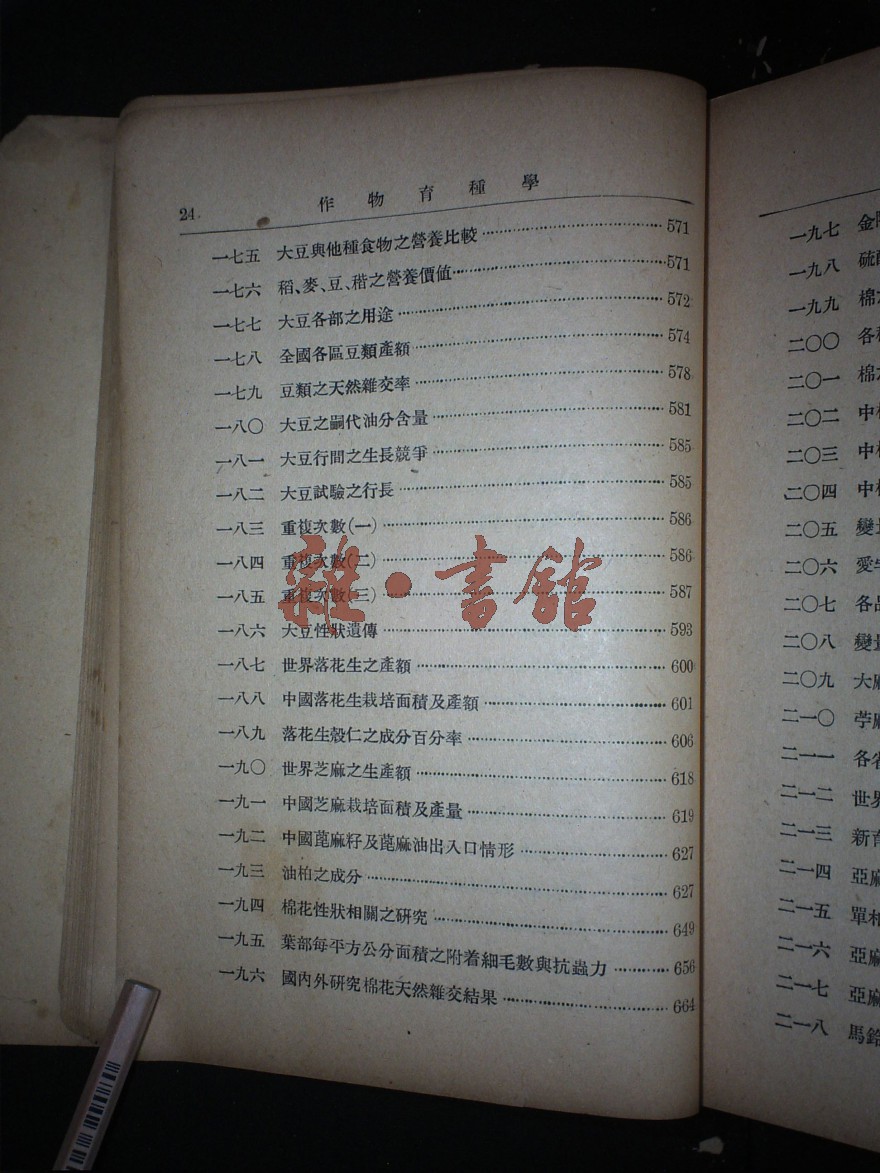 24. 作物育種學
一七五 大豆與他種食物之營養比較 571
一七六 稻、麥、豆、稭之營養價値 571
一七七 大豆各部之用途 572
一七八 全國各區豆類產額 574
一七九 豆類之天然雜交率 578
一八〇 大豆之嗣代油分含量 581
一八一 大豆行間之生長競爭 585
一八二 大豆試驗之行長 585
一八三 重複次數(一) 586
一八四 重複次數(二) 586
一八五 重複次數(三) 587
一八六 大豆性狀遺傳 593
一八七 世界落花生之產額 600
一八八 中國落花生栽培面積及產額 601
一八九 落花生殼仁之成分百分率 606
一九〇 世界芝麻之生產額 618
一九一 中國芝麻栽培面積及產量 619
一九二 中國蓖麻籽及蓖麻油出入口情形 627
一九三 油柏之成分 627
一九四 棉花性狀相關之硏究 649
一九五 葉部每平方公分面積之附着細毛數與抗蟲力 656
一九六 國內外硏究棉花天然雜交結果 664
雜·書館
一九七 金
一九八 硫
一九九 棉
二〇〇 各
二〇一 棉
二〇二 中
二〇三 中
二〇四 中
二〇五 變
二〇六 愛
二〇七 各
二〇八 變
二〇九 大麻
二一〇 苧麻
二一一 各省
二一二 世界
二一三 新育
二一四 亞麻
二一五 單
二一六 亞麻
二一七 亞麻
二一八 馬鈴